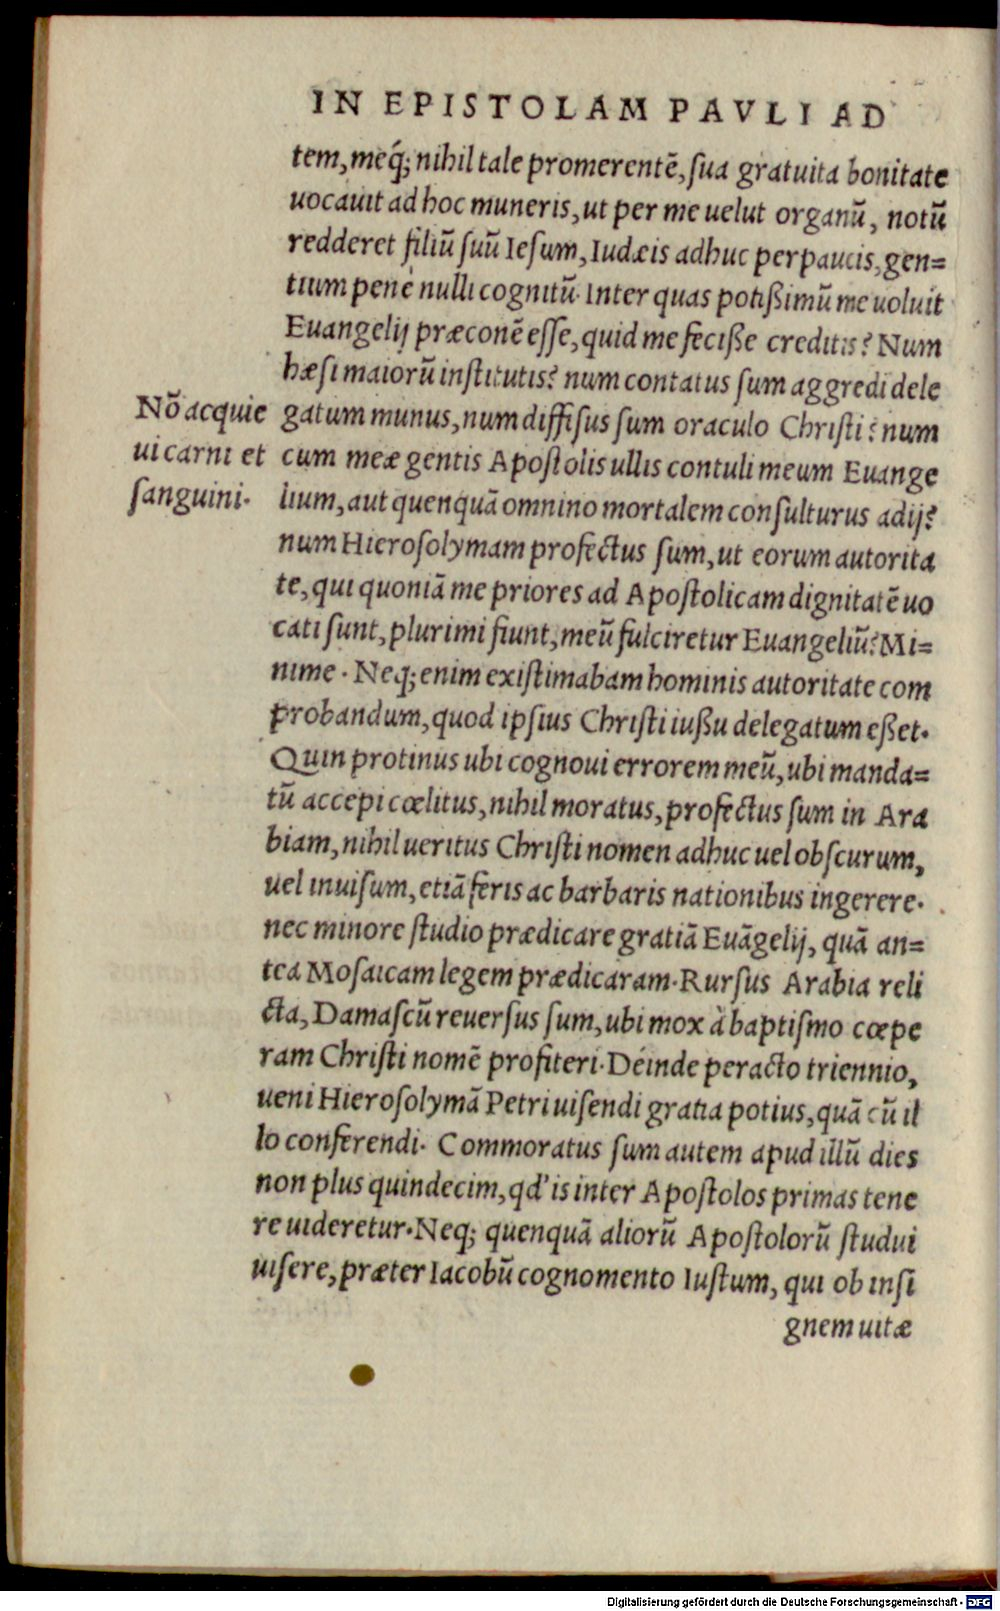 IN EPISTOLAM PAVLI AD
tem, meq́; nihil tale promerentẽ, ſua gratuita bonitate
uocauit ad hoc muneris, ut per me uelut organũ, notũ
redderet filiũ ſuũ Ieſum, Iudæis adhuc perpaucis, gen=
tium penè nulli cognitũ. Inter quas potißimũ me uoluit
Euangelij præconẽ eſſe, quid me feciße creditis? Num
hæſi maiorũ inſtitutis? num contatus ſum aggredi dele
gatum munus, num diffiſus ſum oraculo Chriſti? num
cum meæ gentis Apoſtolis ullis contuli meum Euange
lium, aut quenquã omnino mortalem conſulturus adij?
num Hieroſolymam profectus ſum, ut eorum autorita
te, qui quoniã me priores ad Apoſtolicam dignitatẽ uo
cati ſunt, plurimi fiunt, meũ fulciretur Euangeliũ? Mi=
nime. Neq; enim exiſtimabam hominis autoritate com
probandum, quod ipſius Chriſti iußu delegatum eßet.
Quin protinus ubi cognoui errorem meũ, ubi manda=
tũ accepi cœlitus, nihil moratus, profectus ſum in Ara
biam, nihil ueritus Chriſti nomen adhuc uel obſcurum,
uel inuiſum, etiã feris ac barbaris nationibus ingerere.
nec minore ſtudio prædicare gratiã Euãgelij, quã an=
tea Moſaicam legem prædicaram. Rurſus Arabia reli
cta, Damaſcũ reuerſus ſum, ubi mox à baptiſmo cœpe
ram Chriſti nomẽ profiteri. Deinde peracto triennio,
ueni Hieroſolymã Petri uiſendi gratia potius, quã cũ il
lo conferendi. Commoratus ſum autem apud illũ dies
non plus quindecim, qd' is inter Apoſtolos primas tene
re uideretur. Neq; quenquã aliorũ Apoſtolorũ ſtudui
uiſere, præter Iacobũ cognomento Iuſtum, qui ob inſi
gnem uitæ
Nõ acquie
ui carni et
ſanguini.
Digitalisierung gefördert durch die Deutsche Forschungsgemeinschaft - DFG